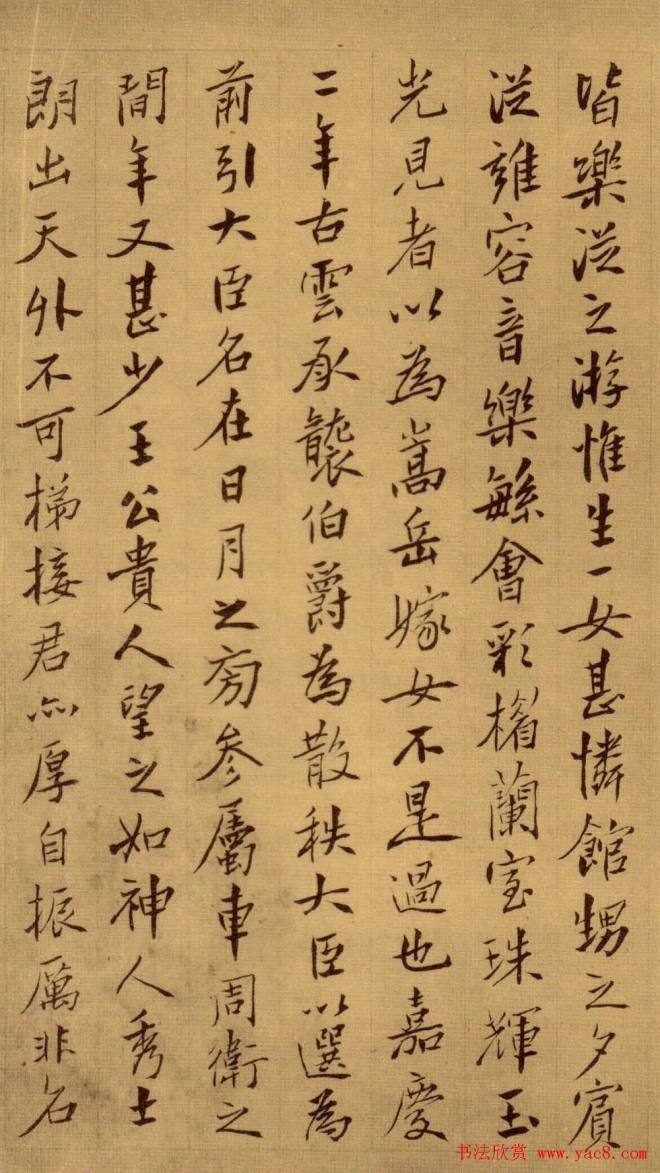 皆樂從之游惟生一女甚憐館甥之夕賓
從雝容音樂繁會彩楣蘭室珠輝玉
光見者以為嵩岳嫁女不是過也嘉慶
二年古雲承襲伯爵為散秩大臣以選為
前引大臣名在日月之旁參屬車周衛之
間年又甚少王公貴人望之如神人秀士
朗出天外不可梯接君亦厚自振厲非名
书法欣赏 www.yac8.com